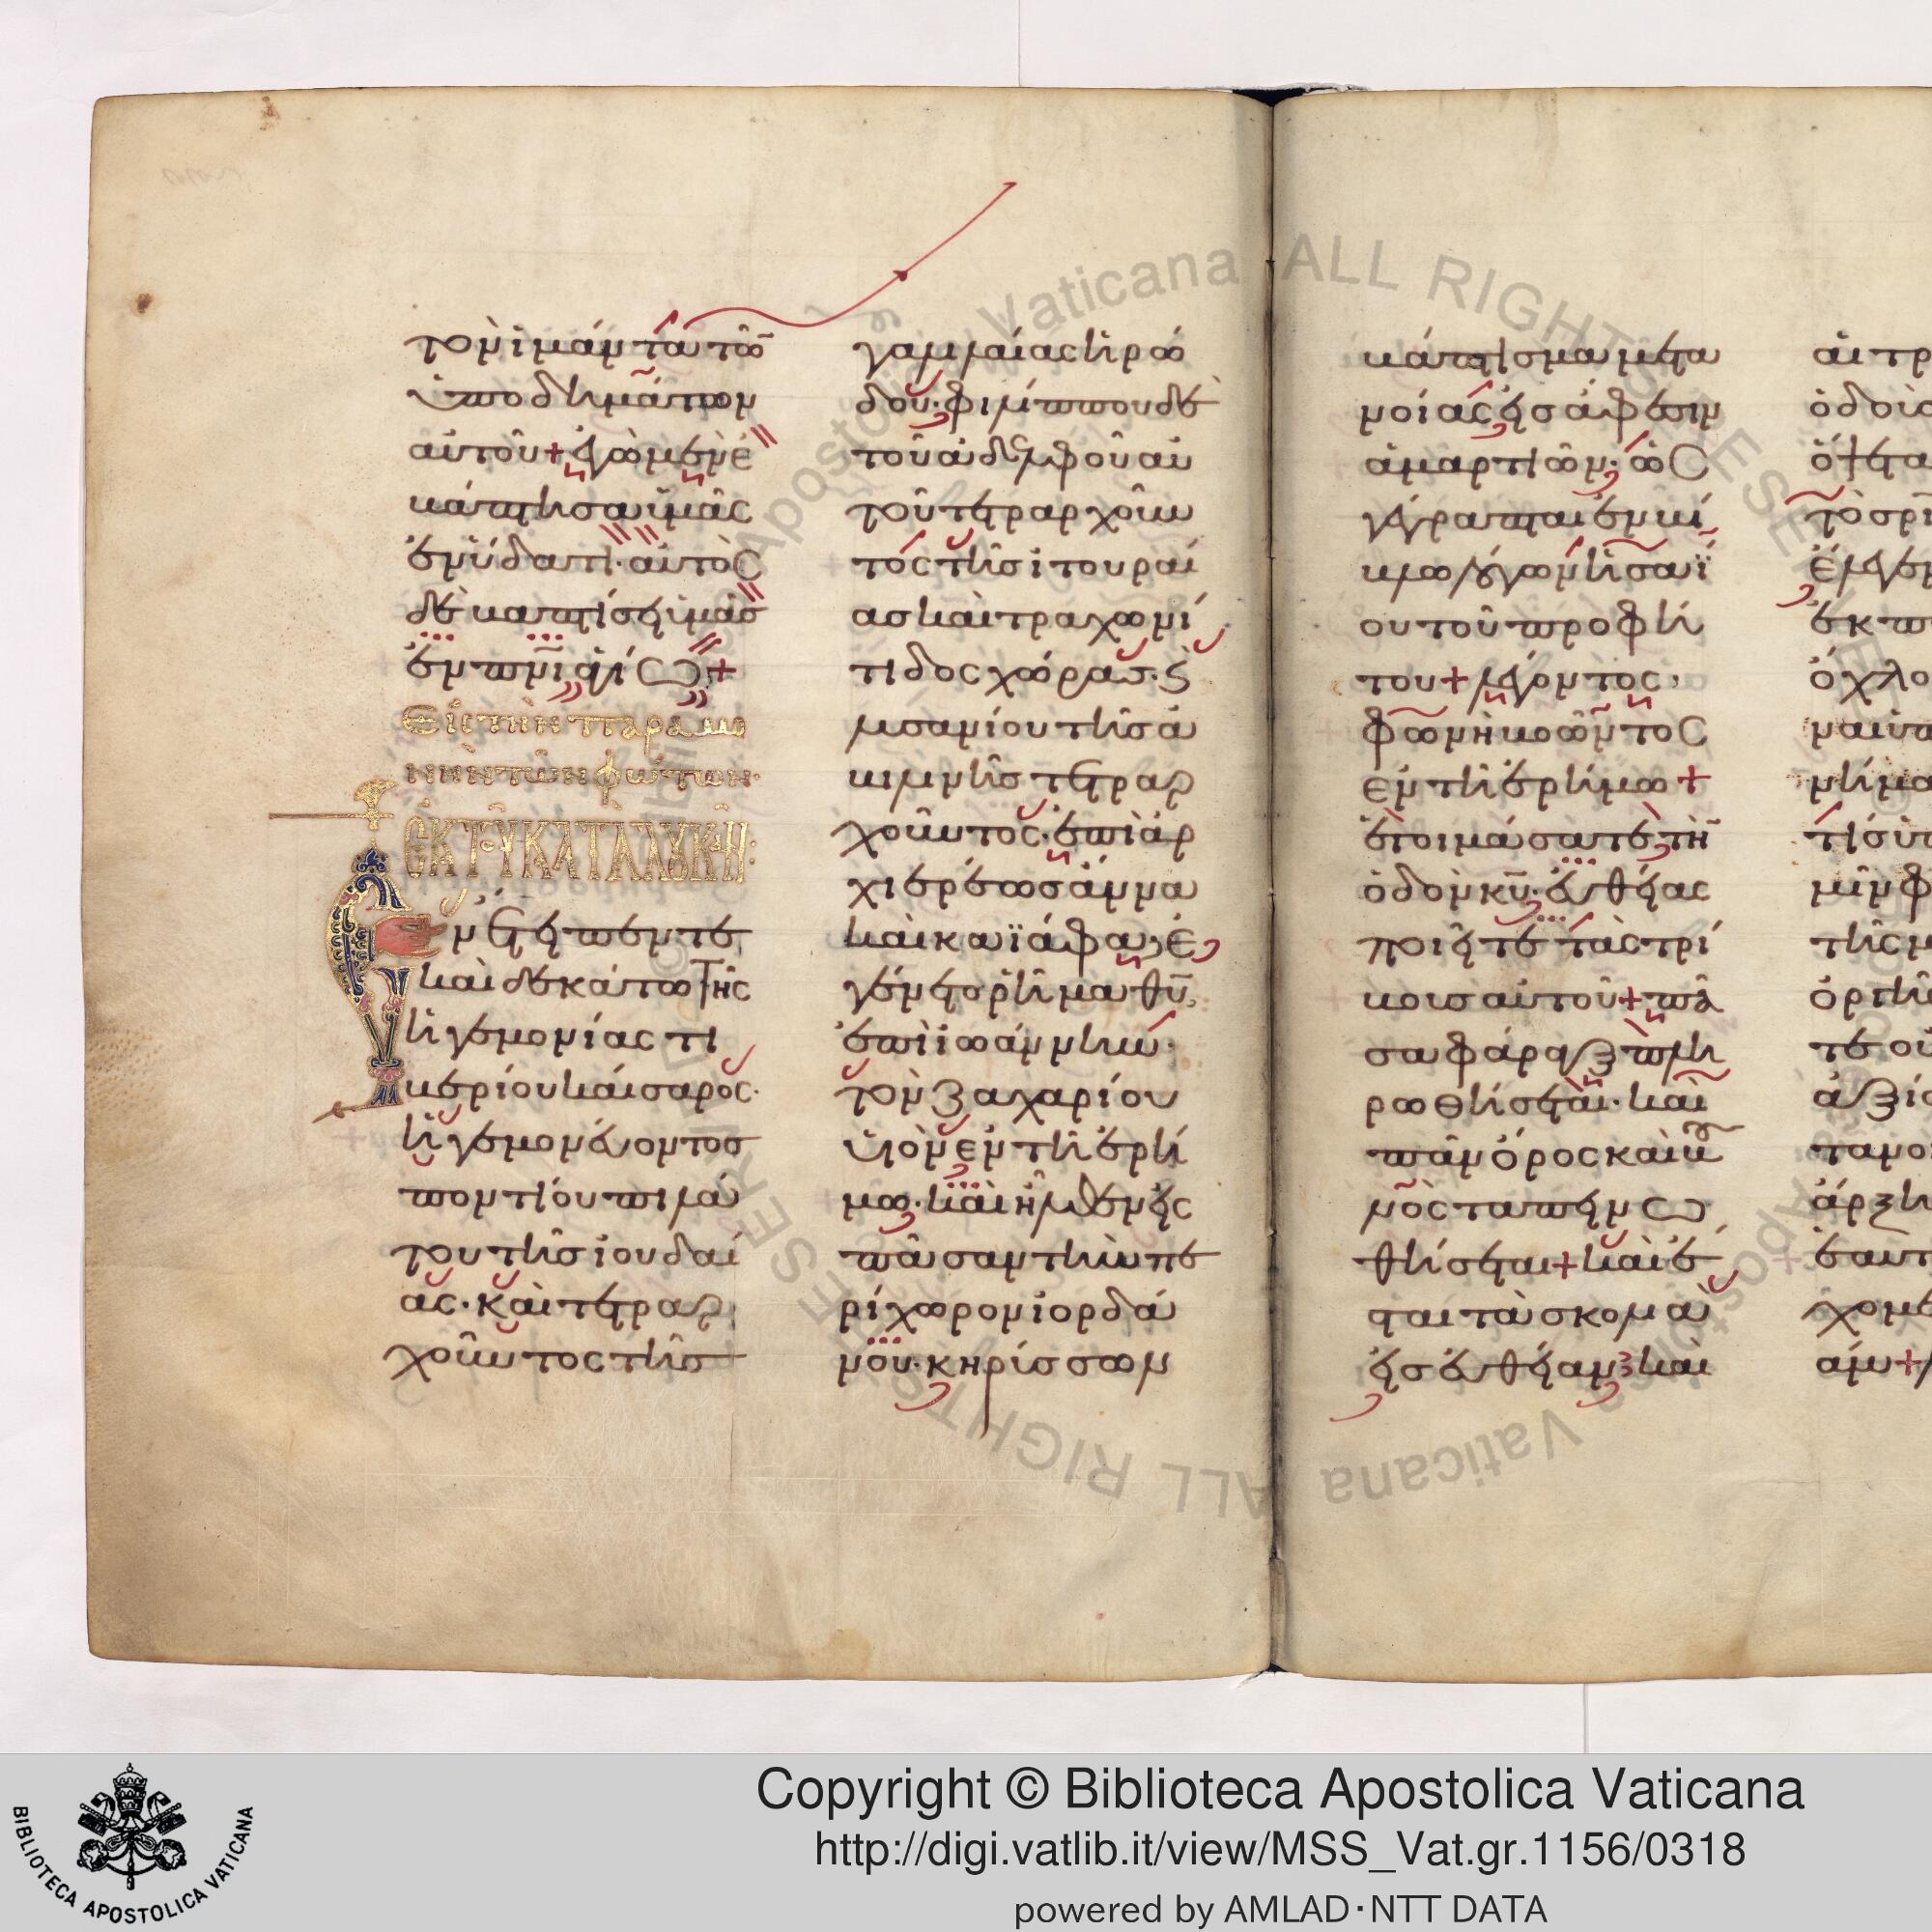 τὸν ἱμάντα τῶ
ὑποδημάτων
αὐτοῦ + ἐγὼ μὲν ἐ
βάπτισα ὑμᾶς
ἐν ὕδατι· αὐτὸς
δὲ βαπτίσει ὑμᾶς
ἐν πνι ἁγίω +
Εἰς τὴν παραμο
νὴν τῶν φώτων·
ἐκ τοῦ κατὰ λουκᾶν:
Ἐν ἔτει πεντε
καιδεκάτω τῆς
ἡγεμονίας τι
βερίου καίσαρος·
ἡγεμονεύοντος
ποντίου πιλά
του τῆς ἰουδαί
ας· καὶ τετραρ
χοῦντος τῆς
γαλιλαίας ἡρώ
δου· φιλίππου δὲ
τοῦ ἀδελφοῦ αὐ
τοῦ τετραρχοῦν
τος τῆς ἰτουραί
ας καὶ τραχωνί
τιδος χώρας· καὶ
λυσανίου τῆς ἀ
βιληνῆς τετραρ
χοῦντος· ἐπὶ ἀρ
χιερέως ἄννα
καὶ καϊάφα, ἐ
γένετο ῥῆμα θυ,
ἐπὶ ἰωάννην·
τὸν ζαχαρίου
υἱὸν ἐν τῆ ἐρή
μω· καὶ ἦλθεν εἰς
πᾶσαν τὴν πε
ρίχωρον ἰορδά
νου· κηρύσσων
βάπτισμα μετα
νοίας εἰς ἄφεσιν
ἁμαρτιῶν· ὡς
γέγραπται ἐν βί
βλω λόγων ἡσαΐ
ου τοῦ προφή
του + λέγοντος,
φωνὴ βοῶντος
ἐν τῆ ἐρήμω +
ἑτοιμάσατε τὴ
ὁδὸν κυ· εὐθείας
ποιεῖτε τὰς τρί
βους αὐτοῦ + πᾶ
σα φάραγξ πλη
ρωθήσεται· καὶ
πᾶν ὄρος καὶ βου
νὸς ταπεινω
θήσεται + καὶ ἔ
σται τὰ σκολιὰ
εἰς εὐθεῖαν· καὶ
αἱ τρ
ὁδοὺς
ὄψετα
τὸ σρι
ἔλεγεν
ἐκπ
ὄχλο
γεννή
τίς ὑπ
τῆς μ
ὀργῆ
ἀξίο
ἄρξη
ἑαυτ
Copyright © Biblioteca Apostolica Vaticana
http://digi.vatlib.it/view/MSS_Vat.gr.1156/0318
powered by AMLAD·NTT DATA
BIBLIOTECA APOSTOLICA VATICANA